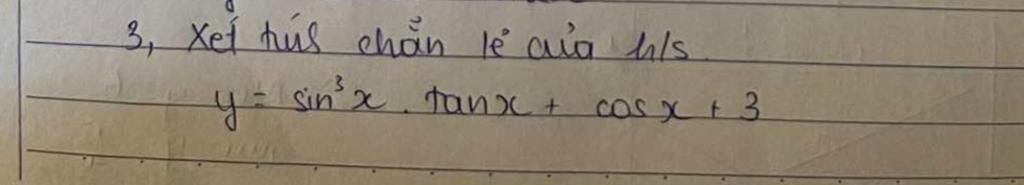 3, Xét tính chẵn lẻ của h/s.
y = sin³x . tanx + cosx + 3